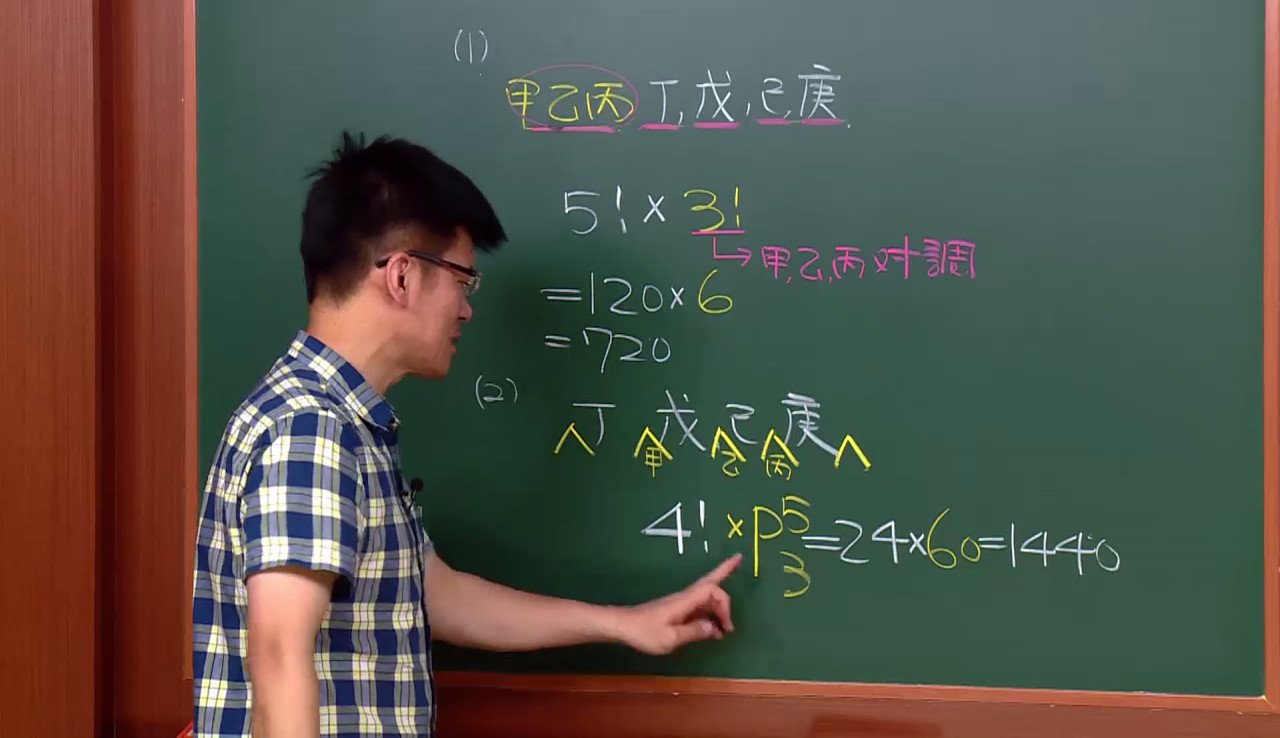 (1)
甲乙丙丁,戊,己,庚.
5!×3!
→甲,乙,丙对調
=120×6
=720
(2)
丁 戊 己 庚
甲 乙 丙
4!×P⁵₃=24×60=1440